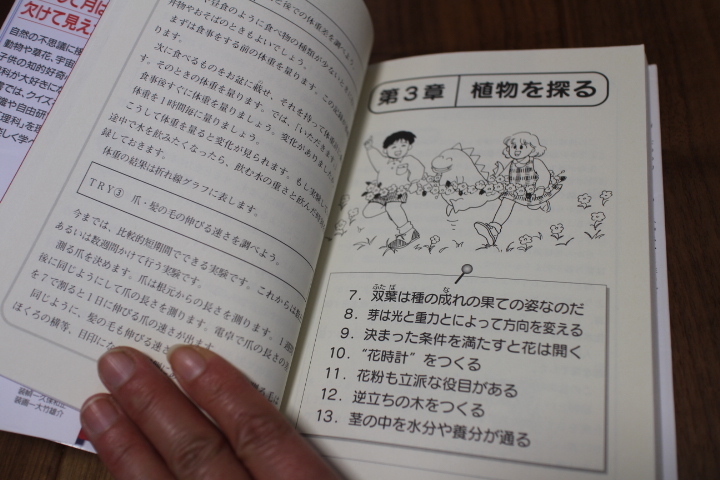 欠けて見え
第3章 植物を探る
まずは食事をする前の体重を量ります。
次に食べるものをお盆に載せ、それを持って体重
す。そのときの体重を量りましょう。では、「いただきます
食事後すぐに体重を量りましょう。変化がありました
体重を1時間毎に量りましょう。
こうして体重を量ると変化が見られます。もし実験し
途中で水を飲みたくなったら、飲む水の重さと飲んだ時
録しておきます。
体重の結果は折れ線グラフに表します。
TRY③ 爪・髪の毛の伸びる速さを調べよう。
今までは、比較的短期間でできる実験です。これからは数
あるいは数週間かけて行う実験です。
測る爪を決めます。爪は根元からの長さを測ります。1週間
後に同じようにして爪の長さを測ります。電卓で爪の長さの
を7で割ると1日に伸びる爪の速さが出ます。
同じように、髪の毛も伸びる速さ
ほくろの横等、目印にな
7. 双葉は種の成れの果ての姿なのだ
8. 芽は光と重力とによって方向を変える
9. 決まった条件を満たすと花は開く
10. “花時計”をつくる
11. 花粉も立派な役目がある
12. 逆立ちの木をつくる
13. 茎の中を水分や養分が通る
装画―大竹雄介